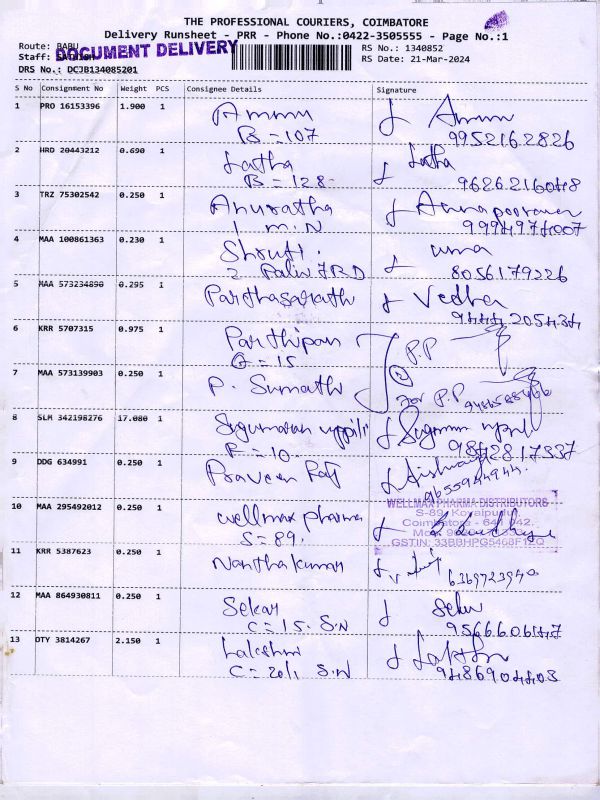 THE PROFESSIONAL COURIERS, COIMBATORE
Delivery Runsheet - PRR - Phone No.:0422-3505555 - Page No.:1
Route: BABU
DOCUMENT DELIVERY
RS No.: 1340852
Staff:
RS Date: 21-Mar-2024
DRS No.: DCJB134085201
S No Consignment No Weight PCS Consignee Details Signature
1 PRO 16153396 1.900 1 Ammu
B = 107 9952162826
2 HRD 20443212 0.690 1 Latha Latha
B = 128 9626216048
3 TRZ 75302542 0.250 1 Anuratha Annapoorani
1 M.N 9994974007
4 MAA 100861363 0.230 1 Shruti. uma
2 8056179226
5 MAA 573234890 0.295 1 Parthasarathi Vedha
9444205434
6 KRR 5707315 0.975 1 Parthipan P.P
G = 15
7 MAA 573139903 0.250 1 P. Sumathi
for P.P
8 SLM 342198276 17.080 1 Sugumaran uppili
F = 10. 9842817337
9 DDG 634991 0.250 1 Praveen Raj
9655944944.
10 MAA 295492012 0.250 1 wellmax pharma
S = 89.
WELLMAX PHARMA DISTRIBUTORS
S-89, Kovaipudur,
Coimbatore - 641 042.
GSTIN: 33BBHPG5468F1ZQ
11 KRR 5387623 0.250 1 Nanthakumar
6369723940
12 MAA 864930811 0.250 1 Sekar
C = 15. S.N 9566606147
13 DTY 3814267 2.150 1 Lakshmi
C = 201 S.N 9486904403